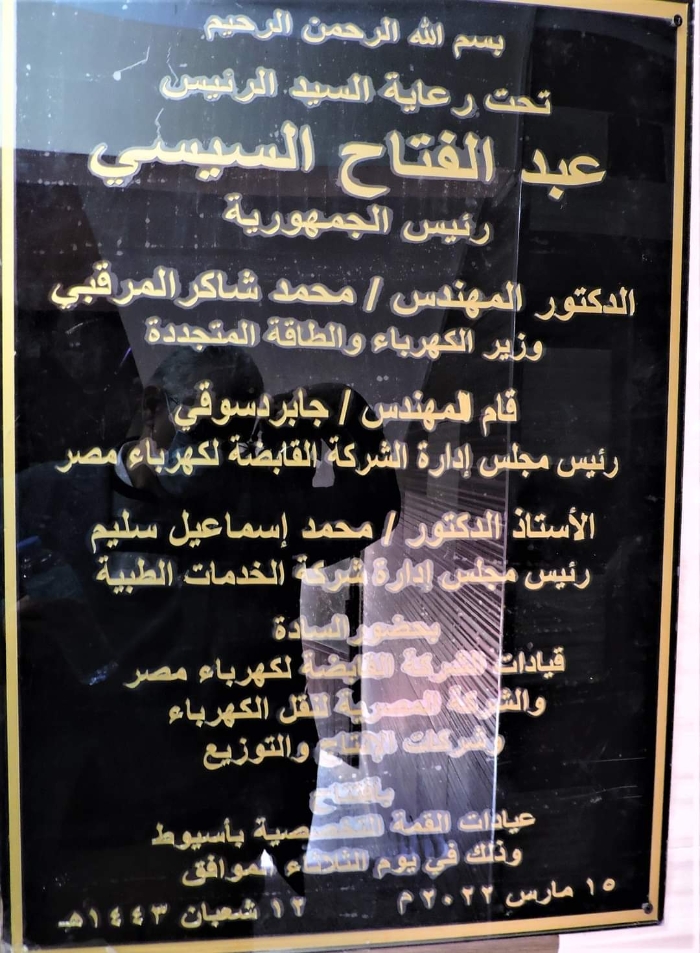 بسم الله الرحمن الرحيم
تحت رعاية السيد الرئيس
عبد الفتاح السيسي
رئيس الجمهورية
الدكتور المهندس / محمد شاكر المرقبي
وزير الكهرباء والطاقة المتجددة
قام المهندس / جابر دسوقي
رئيس مجلس إدارة الشركة القابضة لكهرباء مصر
الأستاذ الدكتور / محمد إسماعيل سليم
رئيس مجلس إدارة شركة الخدمات الطبية
بحضور السادة
قيادات الشركة القابضة لكهرباء مصر
والشركة المصرية لنقل الكهرباء
وشركات الإنتاج والتوزيع
بافتتاح
عيادات القمة التخصصية بأسيوط
وذلك في يوم الثلاثاء الموافق
١٥ مارس ٢٠٢٢ م ١٢ شعبان ١٤٤٣هـ